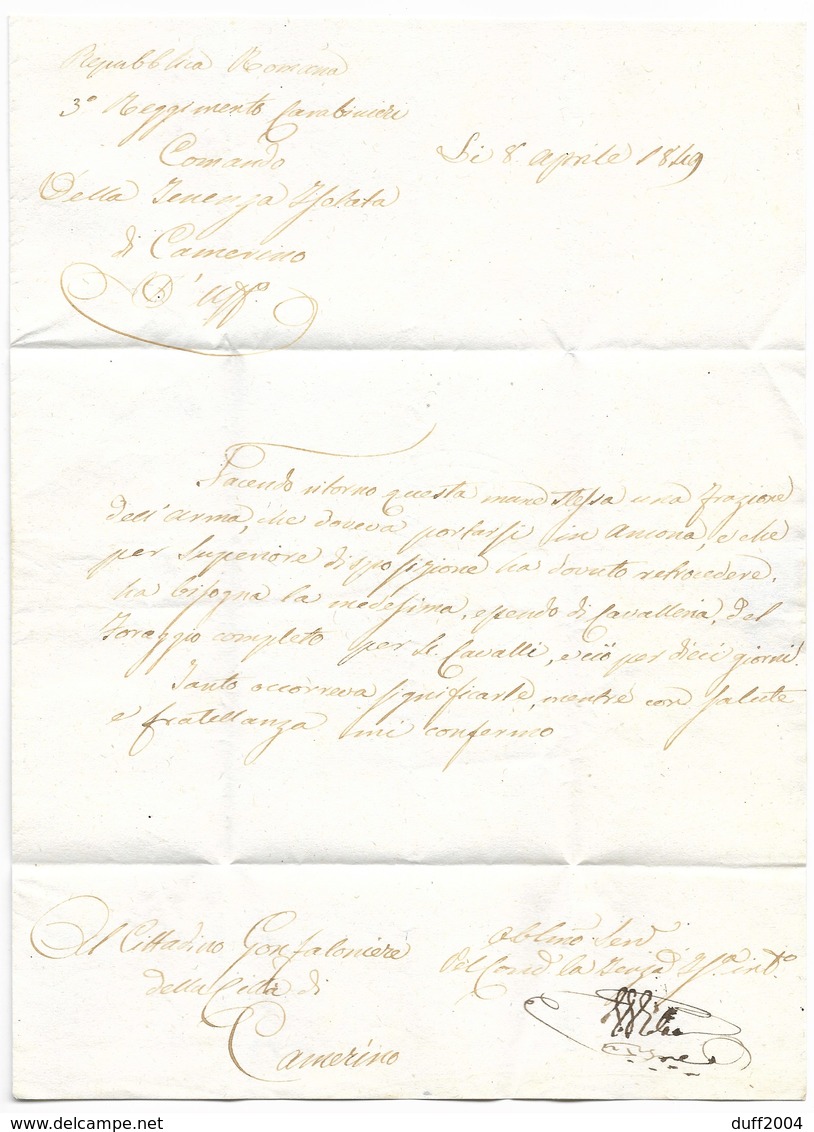 Repubblica Romana
3º Reggimento Carabinieri
Comando
Della Tenenza Isolata
di Camerino
D'Uffº.
Li 8. Aprile 1849
Facendo ritorno questa mane stessa una frazione
dell'Arma, che doveva portarsi in Ancona, e che
per Superiore disposizione ha dovuto retrocedere,
ha bisogna la medesima, essendo di Cavalleria, del
Foraggio completo per Cavalli, e ciò per dieci giorni.
Tanto occorreva significarle, mentre con salute
e fratellanza mi confermo
Al Cittadino Gonfaloniere
della Città di
Camerino
Obblmo Serv
Pel Comd. la Tenza Isa
duff2004